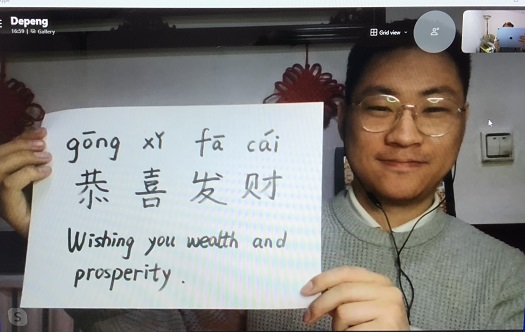 Depeng
16:59 | Gallery
Grid view
gōng xǐ fā cái
恭喜发财
Wishing you wealth and
prosperity.
S